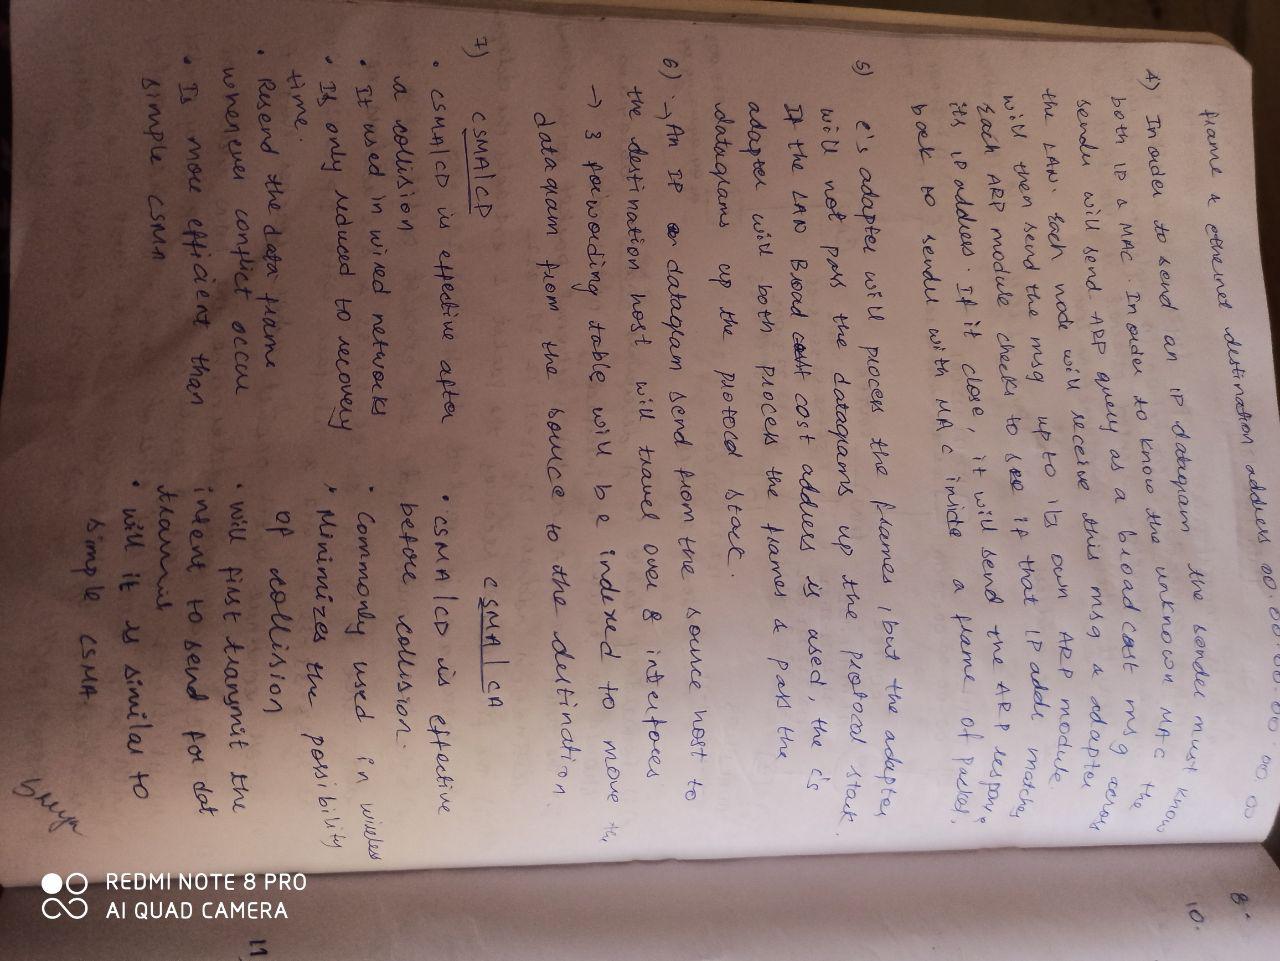 frame & ethernet destination address 00.00.00.00.00.00
4) Inorder to send an IP datagram the sender must know
both IP & MAC. Inorder to know the unknown MAC the
sender will send ARP query as a broad cast msg across
the LAN. Each node will receive this msg & adapter
will then send the msg up to its own ARP module.
Each ARP module checks to see if that IP addr matches
its IP address. If it close, it will send the ARP response
back to sender with MAC inside a frame of packet.
5) c's adapter will process the frames, but the adapter
will not pass the datagrams up the protocol stack.
If the LAN Broad cost address is used, the c's
adapter will both process the frames & pass the
datagrams up the protocol stack.
6) → An IP datagram send from the source host to
the destination host will travel over 8 interfaces
→ 3 forwarding table will be indexed to move the
datagram from the source to the destination
7) CSMA/CD
• CSMA/CD is effective after
a collision
• It used in wired networks
• Is only reduced to recovery
time.
• Resend the data frame
whenever conflict occur
• Is more efficient than
simple CSMA
CSMA/CA
• CSMA/CD is effective
before collision.
• Commonly used in wireless
• Minimizes the possibility
of collision
• will first transmit the
intent to send for dat
• will it is similar to
simple CSMA
Shreya
8.
10.
11
REDMI NOTE 8 PRO
AI QUAD CAMERA